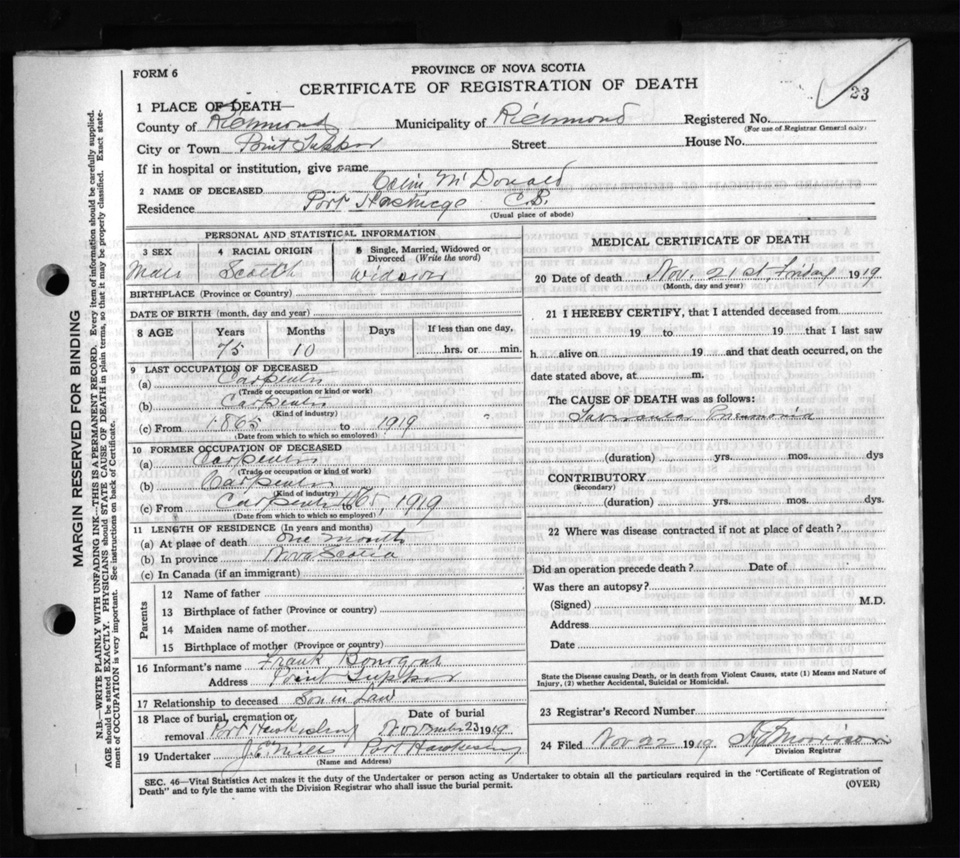 FORM 6
PROVINCE OF NOVA SCOTIA
CERTIFICATE OF REGISTRATION OF DEATH
23
1 PLACE OF DEATH—
County of Richmond Municipality of Richmond Registered No.
(For use of Registrar General only)
City or Town Point Tupper Street House No.
If in hospital or institution, give name
2 NAME OF DECEASED Colin McDonald
Residence Port C.B.
(Usual place of abode)
PERSONAL AND STATISTICAL INFORMATION
3 SEX 4 RACIAL ORIGIN 5 Single, Married, Widowed or Divorced (Write the word)
Male Scotch Widower
BIRTHPLACE (Province or Country)
DATE OF BIRTH (month, day and year)
8 AGE Years Months Days If less than one day,
75 10 hrs. or min.
9 LAST OCCUPATION OF DECEASED
(a) Carpenter
(Trade or occupation or kind or work)
(b) Carpenter
(Kind of industry)
(c) From 1865 to 1919
(Date from which to which so employed)
10 FORMER OCCUPATION OF DECEASED
(a) Carpenter
(Trade or occupation or kind of work)
(b) Carpenter
(Kind of industry)
(c) From Carpenter to 1865, 1919
(Date from which to which so employed)
11 LENGTH OF RESIDENCE (In years and months)
(a) At place of death One month
(b) In province Nova Scotia
(c) In Canada (if an immigrant)
Parents
12 Name of father
13 Birthplace of father (Province or country)
14 Maiden name of mother
15 Birthplace of mother (Province or country)
16 Informant's name Frank
Address Point Tupper
17 Relationship to deceased Son in Law
18 Place of burial, cremation or removal Port Hawkesbury Date of burial November 23 1919
19 Undertaker Port Hawkesbury
(Name and Address)
MEDICAL CERTIFICATE OF DEATH
20 Date of death Nov. 21st, Friday 1919
(Month, day and year)
21 I HEREBY CERTIFY, that I attended deceased from
19 to 19 that I last saw
h alive on 19 and that death occurred, on the
date stated above, at m.
The CAUSE OF DEATH was as follows:
Pneumonia
(duration) yrs. mos. dys
CONTRIBUTORY
(Secondary)
(duration) yrs. mos. dys.
22 Where was disease contracted if not at place of death?
Did an operation precede death? Date of
Was there an autopsy?
(Signed) M.D.
Address
Date
State the Disease causing Death, or in death from Violent Causes, state (1) Means and Nature of Injury, (2) whether Accidental, Suicidal or Homicidal.
23 Registrar's Record Number
24 Filed Nov 22 1919 Morrison
Division Registrar
SEC. 46—Vital Statistics Act makes it the duty of the Undertaker or person acting as Undertaker to obtain all the particulars required in the "Certificate of Registration of
Death" and to fyle the same with the Division Registrar who shall issue the burial permit.
(OVER)
MARGIN RESERVED FOR BINDING
N.B.—WRITE PLAINLY WITH UNFADING INK—THIS IS A PERMANENT RECORD. Every item of information should be carefully supplied.
AGE should be stated EXACTLY. PHYSICIANS should STATE CAUSE OF DEATH in plain terms, so that it may be properly classified. Exact state-
ment of OCCUPATION is very important. See instructions on back of Certificate.